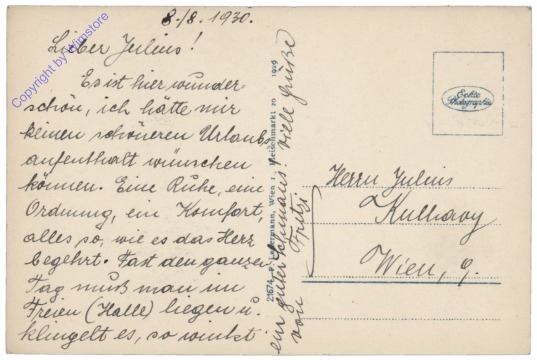 8./8. 1930.
Lieber Julius!
Es ist hier wunder
schön, ich hätte mir
keinen schöneren Urlaubs
aufenthalt wünschen
können. Eine Ruhe, eine
Ordnung, ein Komfort,
alles so, wie es das Herz
begehrt. Fast den ganzen
Tag muß man im
Freien (Halle) liegen u.
klingelt es, so winkt
ein guter Schmaus! Viele Grüße
von Fritzi
21674 P. Ledermann, Wien I., Fleischmarkt 20 1929
Echte
Photographie
Herrn Julius
Kulhavy
Wien, 9.
Copyright by Wimstore